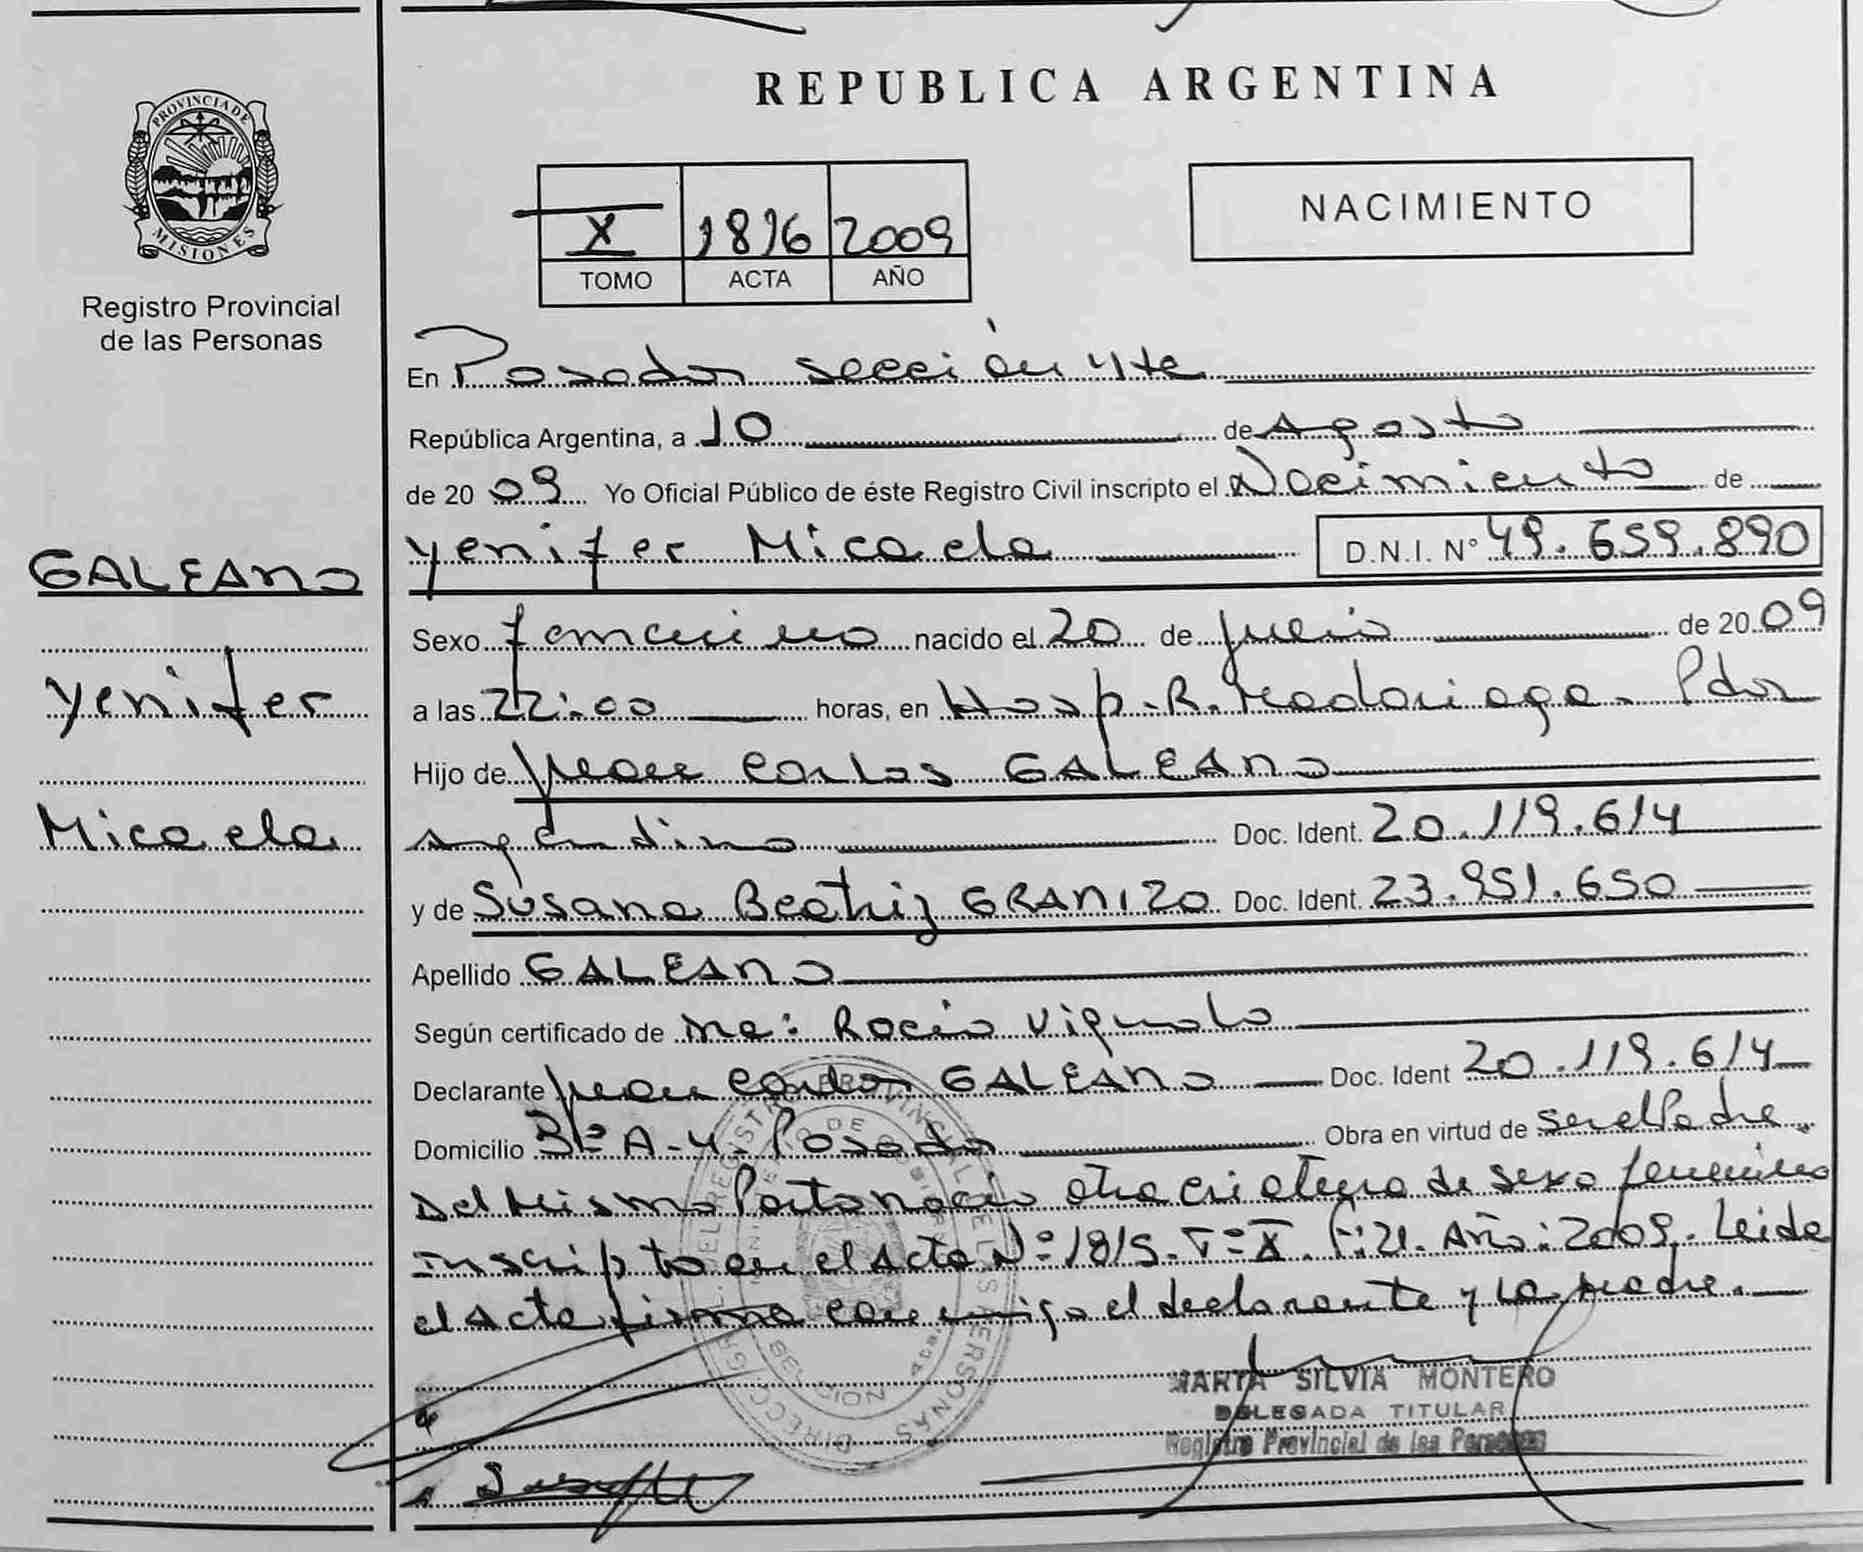 REPUBLICA ARGENTINA
PROVINCIA DE
MISIONES
Registro Provincial
de las Personas
X 1816 2009
TOMO ACTA AÑO
NACIMIENTO
En Posadas sección 4ta
República Argentina, a 10 de Agosto
de 2009 Yo Oficial Público de éste Registro Civil inscripto el Nacimiento de
Yenifer Micaela D.N.I. N° 49.659.890
GALEANO
Yenifer
Micaela
Sexo femenino nacido el 20 de Julio de 2009
a las 22:00 horas, en Hosp. R. Madariaga - Pdas
Hijo de Juan Carlos GALEANO
Argentino Doc. Ident. 20.119.614
y de Susana Beatriz GRANIZO Doc. Ident. 23.951.650
Apellido GALEANO
Según certificado de Rocio Vignolo
Declarante Juan Carlos GALEANO Doc. Ident 20.119.614
Domicilio A-4. Posadas Obra en virtud de ser el Padre.
Del Mismo Parto nacio otra criatura de sexo femenino
inscripto en el acta N° 1815. T° X. F: 21. Año: 2009. Leida
el acta firma conmigo el declarante y la madre.
MARTA SILVIA MONTERO
DELEGADA TITULAR
Registro Provincial de las Personas